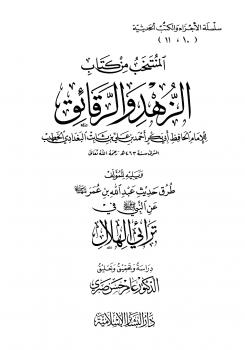 سلسلة الأجزاء والكتب الحديثية
(١٠، ١١)
المنتخب من كتاب
الزهد والرقائق
للإمام الحافظ أبي بكر أحمد بن علي بن ثابت البغدادي الخطيب
المتوفى سنة ٤٦٣ هـ رحمه الله تعالى
ويليه للمؤلف
طرق حديث عبد الله بن عمر
عن النبي ﷺ في
ترائي الهلال
دراسة وتحقيق وتعليق
الدكتور عامر حسن صبري
دار البشائر الإسلامية